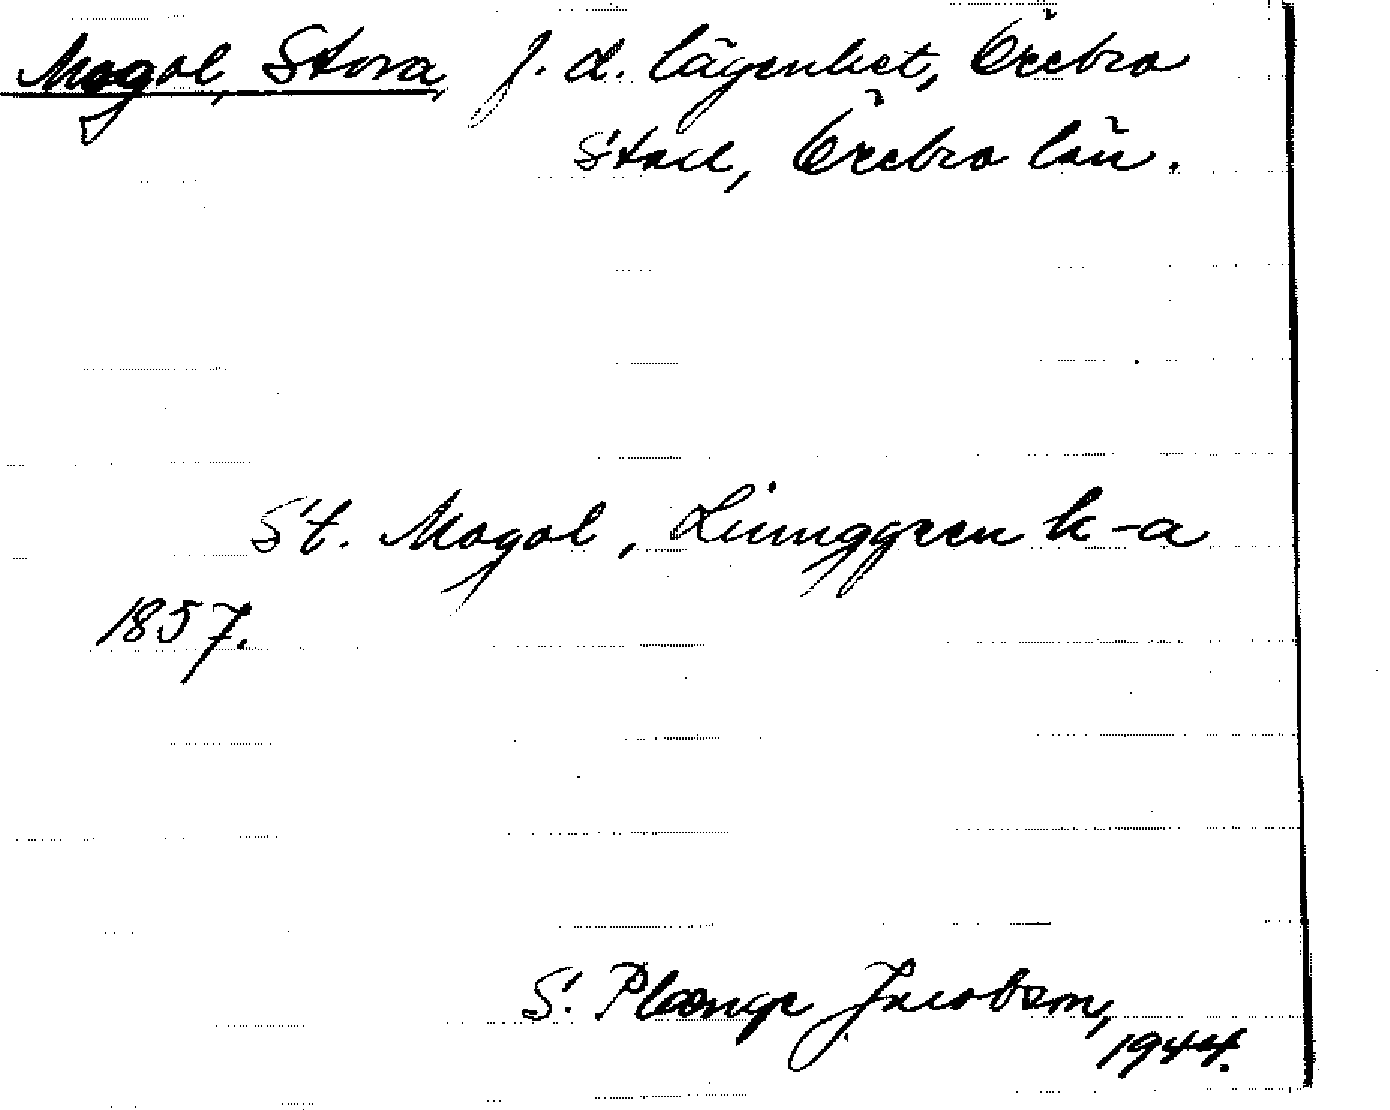 Mogol, Stora, f. d. lägenhet, Örebro
stad, Örebro län.
St. Mogol, Ljunggren k-a
1857.
S. Plænge Jacobson,
1944.